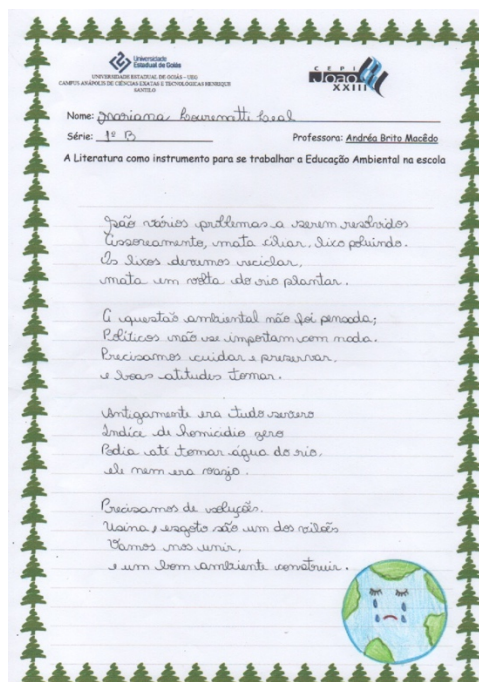 Universidade
Estadual de Goiás
UNIVERSIDADE ESTADUAL DE GOIÁS – UEG
CAMPUS ANÁPOLIS DE CIÊNCIAS EXATAS E TECNOLÓGICAS HENRIQUE
SANTILLO
CEPI
João
XXIII
Nome: Mariana Leal
Série: 1º B Professora: Andréa Brito Macêdo
A Literatura como instrumento para se trabalhar a Educação Ambiental na escola
São vários problemas a serem resolvidos
Assoreamento, mata ciliar, lixo poluindo.
Os lixos devemos reciclar,
mata em volta do rio plantar.
A questão ambiental não foi pensada;
Políticos não se importam com nada.
Precisamos cuidar e preservar,
e boas atitudes tomar.
Antigamente era tudo sereno
Indíce de homicídio zero
Podia até tomar água do rio,
ele nem era vazio.
Precisamos de soluções.
Usina e esgoto são um dos vilões
Vamos nos unir,
e um bom ambiente construir.